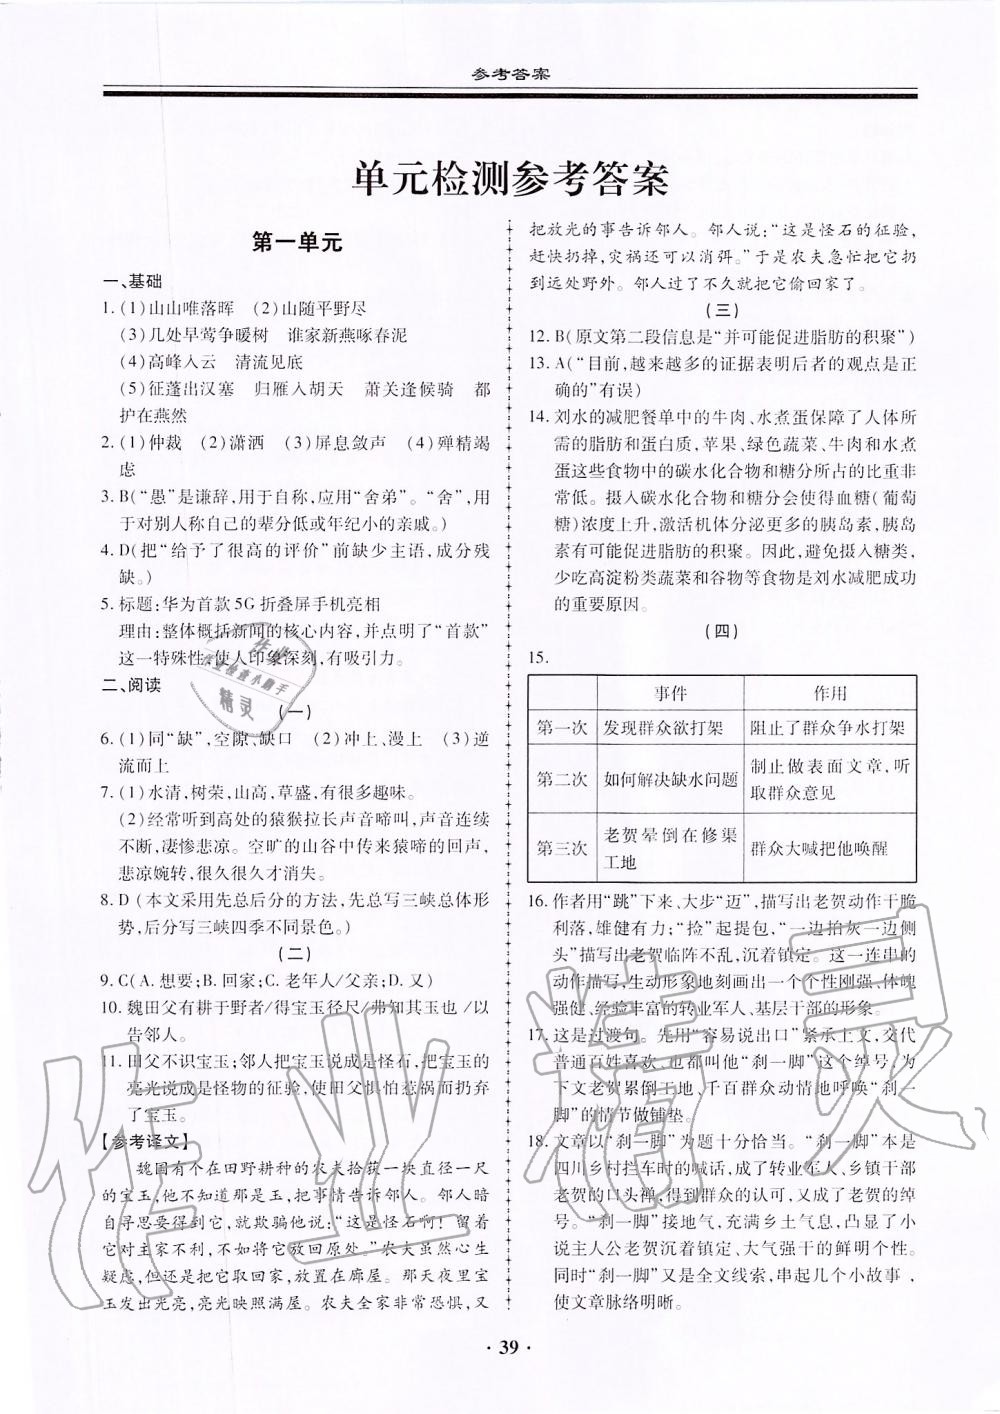 参考答案
单元检测参考答案
第一单元
一、基础
1. (1)山山唯落晖　(2)山随平野尽
(3)几处早莺争暖树　谁家新燕啄春泥
(4)高峰入云　清流见底
(5)征蓬出汉塞　归雁入胡天　萧关逢候骑　都
护在燕然
2. (1)仲裁　(2)潇洒　(3)屏息敛声　(4)殚精竭
虑
3. B(“愚”是谦辞,用于自称,应用“舍弟”。“舍”,用
于对别人称自己的辈分低或年纪小的亲戚。)
4. D(把“给予了很高的评价”前缺少主语,成分残
缺。)
5. 标题:华为首款5G折叠屏手机亮相
理由:整体概括新闻的核心内容,并点明了“首款”
这一特殊性,使人印象深刻,有吸引力。
二、阅读
(一)
6. (1)同“缺”,空隙、缺口　(2)冲上、漫上　(3)逆
流而上
7. (1)水清,树荣,山高,草盛,有很多趣味。
(2)经常听到高处的猿猴拉长声音啼叫,声音连续
不断,凄惨悲凉。空旷的山谷中传来猿啼的回声,
悲凉婉转,很久很久才消失。
8. D (本文采用先总后分的方法,先总写三峡总体形
势,后分写三峡四季不同景色。)
(二)
9. C(A. 想要;B. 回家;C. 老年人/父亲;D. 又)
10. 魏田父有耕于野者/得宝玉径尺/弗知其玉也 /以
告邻人。
11. 田父不识宝玉;邻人把宝玉说成是怪石,把宝玉的
亮光说成是怪物的征验,使田父惧怕惹祸而扔弃
了宝玉。
【参考译文】
魏国有个在田野耕种的农夫拾获一块直径一尺
的宝玉,他不知道这是玉,把事情告诉邻人。邻人暗
自寻思要得到它,就欺骗他说:“这是怪石啊!留着
它对主家不利,不如将它放回原处。”农夫虽然心生
疑虑,但还是把它取回家,放置在廊屋。那天夜里宝
玉发出光亮,亮光映照满屋。农夫全家非常恐惧,又
把放光的事告诉邻人。邻人说:“这是怪石的征验,
赶快扔掉,灾祸还可以消弭。”于是农夫急忙把它扔
到远处野外。邻人过了不久就把它偷回家了。
(三)
12. B(原文第二段信息是“并可能促进脂肪的积聚”)
13. A(“目前,越来越多的证据表明后者的观点是正
确的”有误)
14. 刘水的减肥餐单中的牛肉、水煮蛋保障了人体所
需的脂肪和蛋白质,苹果、绿色蔬菜、牛肉和水煮
蛋这些食物中的碳水化合物和糖分所占的比重非
常低。摄入碳水化合物和糖分会使得血糖(葡萄
糖)浓度上升,激活机体分泌更多的胰岛素,胰岛
素有可能促进脂肪的积聚。因此,避免摄入糖类,
少吃高淀粉类蔬菜和谷物等食物是刘水减肥成功
的重要原因。
(四)
15.
事件　作用
第一次　发现群众欲打架　阻止了群众争水打架
第二次　如何解决缺水问题　制止做表面文章,听
取群众意见
第三次　老贺晕倒在修渠
工地　群众大喊把他唤醒
16. 作者用“跳”下来、大步“迈”,描写出老贺动作干脆
利落,雄健有力;“捡”起提包,“一边拍灰一边侧
头”描写出老贺临阵不乱,沉着镇定。这一连串的
动作描写,生动形象地刻画出一个个性刚强、体魄
强健、经验丰富的转业军人、基层干部的形象。
17. 这是过渡句。先用“容易说出口”紧承上文,交代
普通百姓喜欢,也都叫他“刹一脚”这个绰号,为
下文老贺累倒工地、千百群众动情地呼唤“刹一
脚”的情节做铺垫。
18. 文章以“刹一脚”为题十分恰当。“刹一脚”本是
四川乡村拦车时的喊话,成了转业军人、乡镇干部
老贺的口头禅,得到群众的认可,又成了老贺的绰
号。“刹一脚”接地气,充满乡土气息,凸显了小
说主人公老贺沉着镇定、大气强干的鲜明个性。
同时“刹一脚”又是全文线索,串起几个小故事,
使文章脉络明晰。
· 39 ·
作业精灵
作业
作业检查小助手
精灵